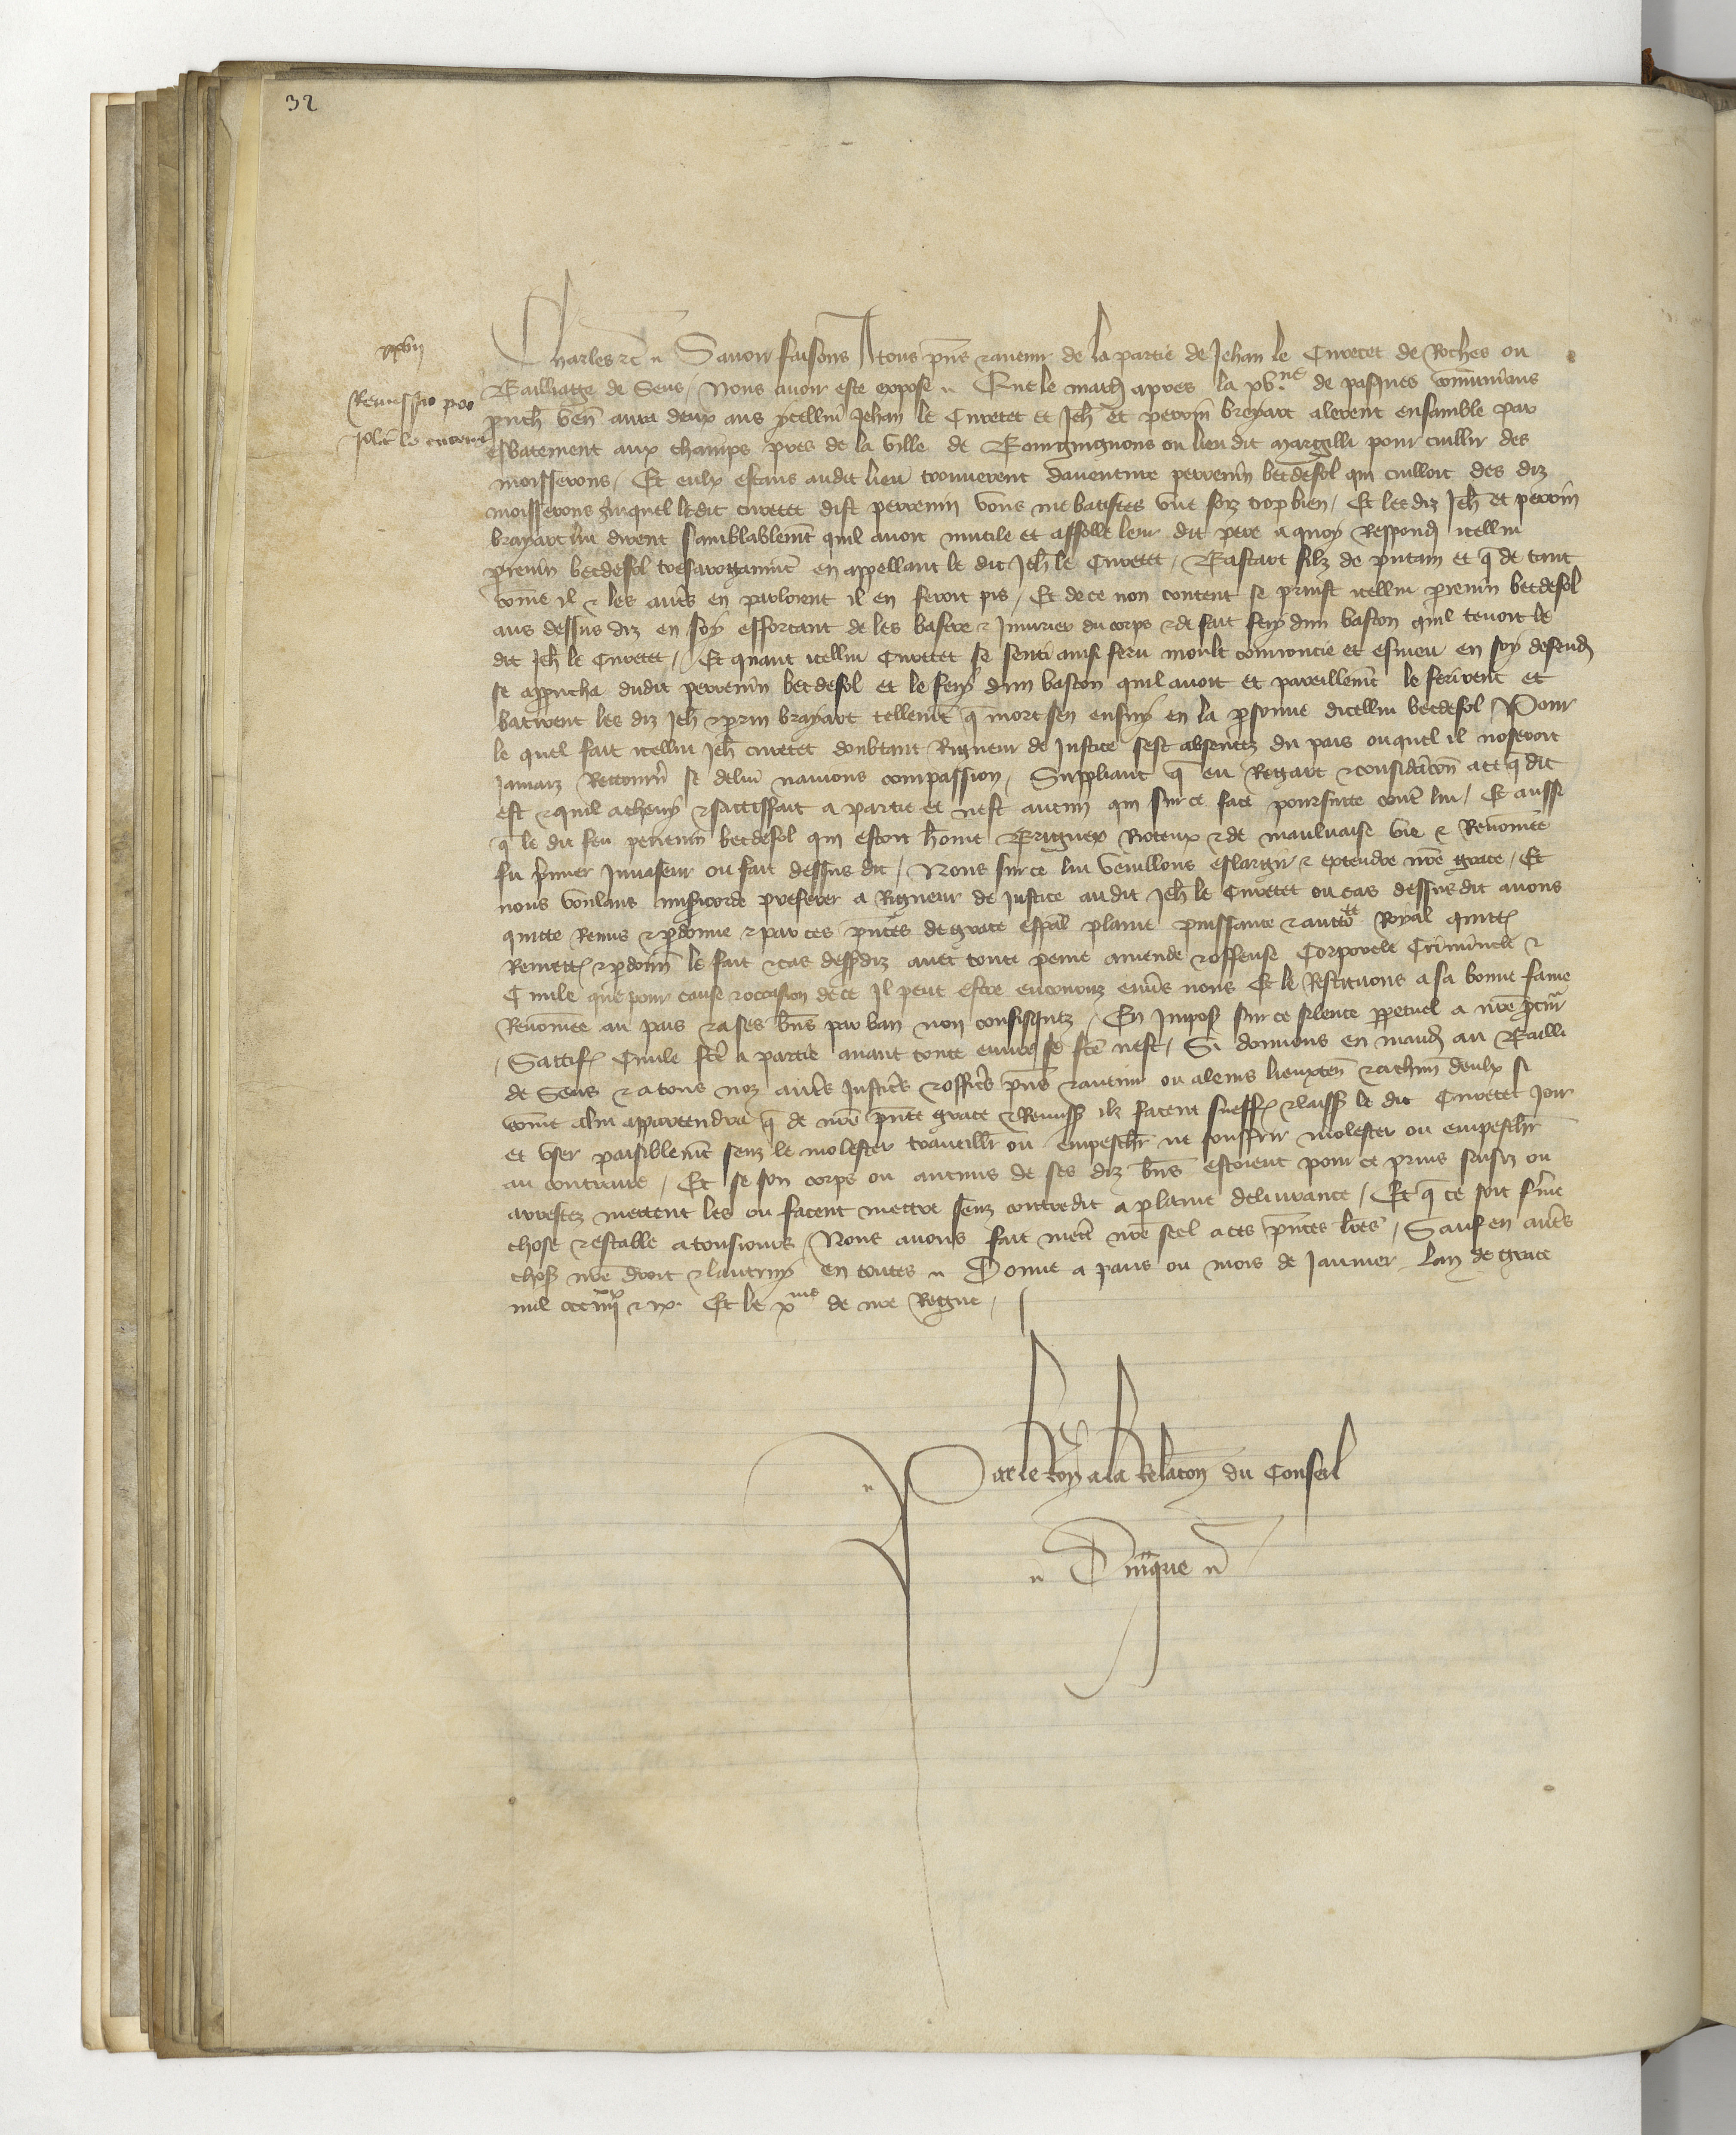 32
xxvii
Remissio pro
Joh̄e le Curetet
Charles etc̄ Savoir faisons A tous pn̄s et avenir de la partie de Jehan le Curetet de Roches ou
Bailliage de Sens, Nous avoir este expose Que le mardj apres la xv.ne de pasques com̄unians
proch̄ ven̄ aura deux ans ycellui Jehan le Curetet et Jeh̄ et perrin brayart alerent ensamble par
esbatement aux champs pres de la ville de Bourguignons ou lieu dit margilli pour cuillir des
moisserons, Et eulx estans audit lieu trouverent daventure perrenin betdesol qui cuilloit des diz
moisserons Auquel ledit curetet dist perrenin vous me batistes une foiz trop bien, Et les diz Jeh̄ et perrin
brayart lui dirent samblablem̄t quil avoit mutile et affolle leur dit pere a quoy Respondj icellui
p̄renin betdesol tresarrogamm̄t en appellant le dit Jeh̄ le Curetet, Bastart filz de putain et q̄ de tant
com̄e il et les autr̄s en parloient il en feroit pis, Et de ce non content se prinst icellui p̄renin betdesol
aus dessus diz en soy efforcant de les batre et Jniurier du corps et de fait fery dun baston quil tenoit le
dit Jeh̄ le Curetet, Et quant icellui Curetet se senti ainsi feru moult courroucie et esmeu en soy defendj
se approucha dudit perrenin betdesol et le fery dun baston quil avoit et pareillem̄t le ferirent et
batirent les diz Jeh̄ et p̄rin brayart tellem̄t q̄ mort sen ensuy en la p̄sonne dicellui betdesol Pour
le quel fait icellui Jeh̄ curetet doubtant Rigueur de Justice sest absentez du pais ouquel il noseroit
Jamaiz Retourn̄ se de lui navions compassion, Suppliant q̄ eu Regart et considerac̄on a ce q̄ dit
est et quil a chevy et sattisfait a partie et nest aucun qui sur ce face poursuite contr̄ lui, Et aussi
q̄ le dit feu perrenin betdesol qui estoit hom̄e Brigueux Rioteux et de mauluaise vie et Renom̄ee
fu p̄mier Jnvaseur ou fait dessus dit, Nous sur ce lui vueillons eslargir et extendre nr̄e grace, Et
nous voulans mis̄icorde preferer a Rigueur de Justice audit Jeh̄ le Curetet ou cas dessusdit avons
quitte Remis et p̄donne et par ces pn̄tes de grace esp̄al plaine puissance et auctorite Royal quitt̄
Remett̄ et p̄donn̄ le fait et cas dessusdiz avec toute peine amende et offense Corporele Criminele et
Civile que pour cause et occasion de ce Il peut estre encouruz env̄s nous Et le Restituons a sa bonne fame
Renom̄ee au pais et a ses bn̄s par ban non confisquez, En Jmpos̄ sur ce silence p̄petuel a nr̄e proc̄ur̄
, Sattisf̄ Civile fc̄e a partie avant toute euvre se fc̄e nest, Si donnons en mandj au Bailli
de Sens et a tous noz autr̄s Justic̄s et offic̄s pn̄s et avenir ou a leurs lieuxten̄ et a chūn deulx si
com̄e a lui appartendra q̄ de nr̄e pn̄te grace et Remiss̄ ilz facent sueff̄ et laiss̄ le dit Curetet Joir
et user paisiblem̄t senz le molester travaillier ou empeschr̄ ne souffrir molester ou empeschr̄
au contraire, Et se son corps ou aucuns de ses diz bn̄s estoient pour ce prins saisiz ou
arrestez mettent les ou facent mettre senz contredit a plaine delivrance, Et q̄ ce soit ferme
chose et estable a tousiours Nous avons fait mettr̄ nr̄e seel a ces pn̄tes lr̄es, Sauf en autr̄s
chos̄ nr̄e droit et lautruy en toutes Donne a paris ou mois de Janvier Lan de grace
mil ccc iiiixx et ix. Et le xme de nr̄e Regne,
Par le Roy a la Relacōn du Conseil